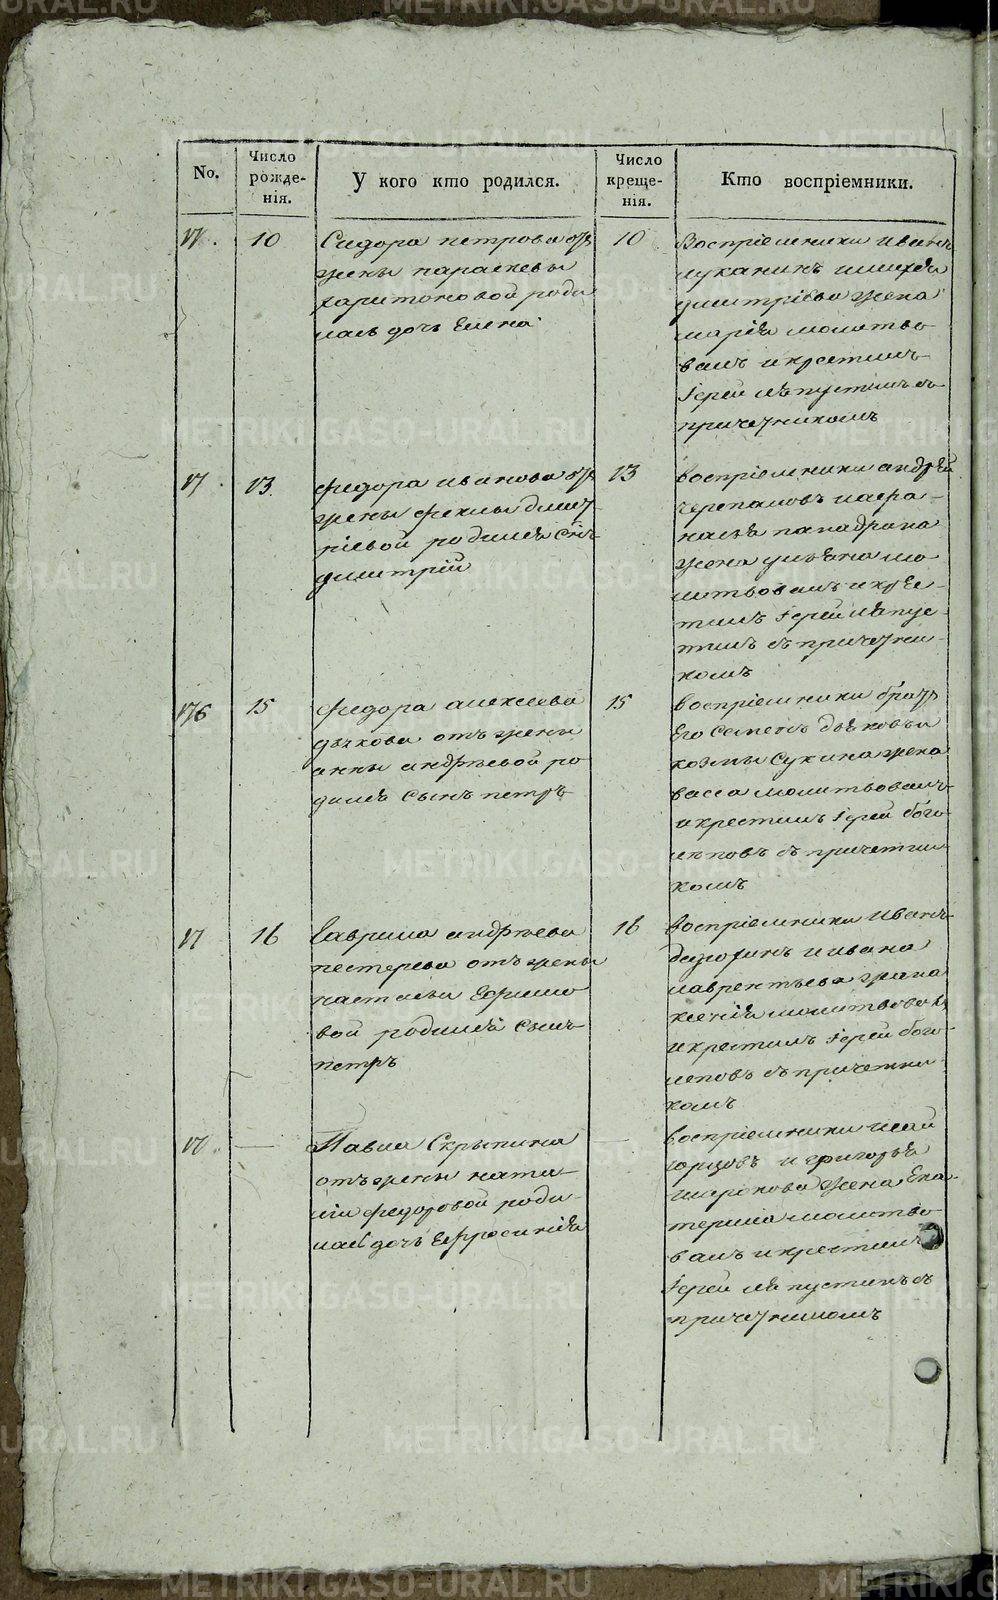 METRIKI.GASO-URAL.RU
No.
Число рожде-нія.
У кого кто родился.
Число креще-нія.
Кто воспріемники.
10
Сидора петрова отъ
жены параскевы
харитоновой роди
лась дочь Елена
10
Воспріемники иванъ
луканинъ
дмитріева жена
марія молитво
валъ и крестилъ
Іерей лѣпустинъ съ
причетникомъ
17
13
Федора иванова отъ
жены феклы димит
ріевой родился сынъ
димитрій
13
воспріемники андрей
черепановъ и афа
насья
жена ульяна мо
литвовалъ и крес
тилъ Іерей лѣпус
тинъ съ причетни
комъ
176
15
Федора алексеева
дьякова отъ жены
анны андреевой ро
дился сынъ петръ
15
воспріемники братъ
Его Семенъ дьяковъ и
козмы Сукина жена
васса молитвовалъ
и крестилъ Іерей бого
леповъ съ причетни
комъ
17
16
Гаврила андреева
пестерева отъ жены
настасьи Ефимо
вой родился сынъ
петръ
16
Воспріемники Иванъ
и ивана
лаврентьева жена
ксенія молитвовалъ
и крестилъ Іерей бого
леповъ съ причетни
комъ
Павла Скрыпина
отъ жены ната
ліи федоровой роди
лась дочь Ефросинія
воспріемники исай
юрцовъ и григорья
широкова жена Ека
терина молитво
валъ и крестилъ
Іерей лѣпустинъ съ
причетникомъ